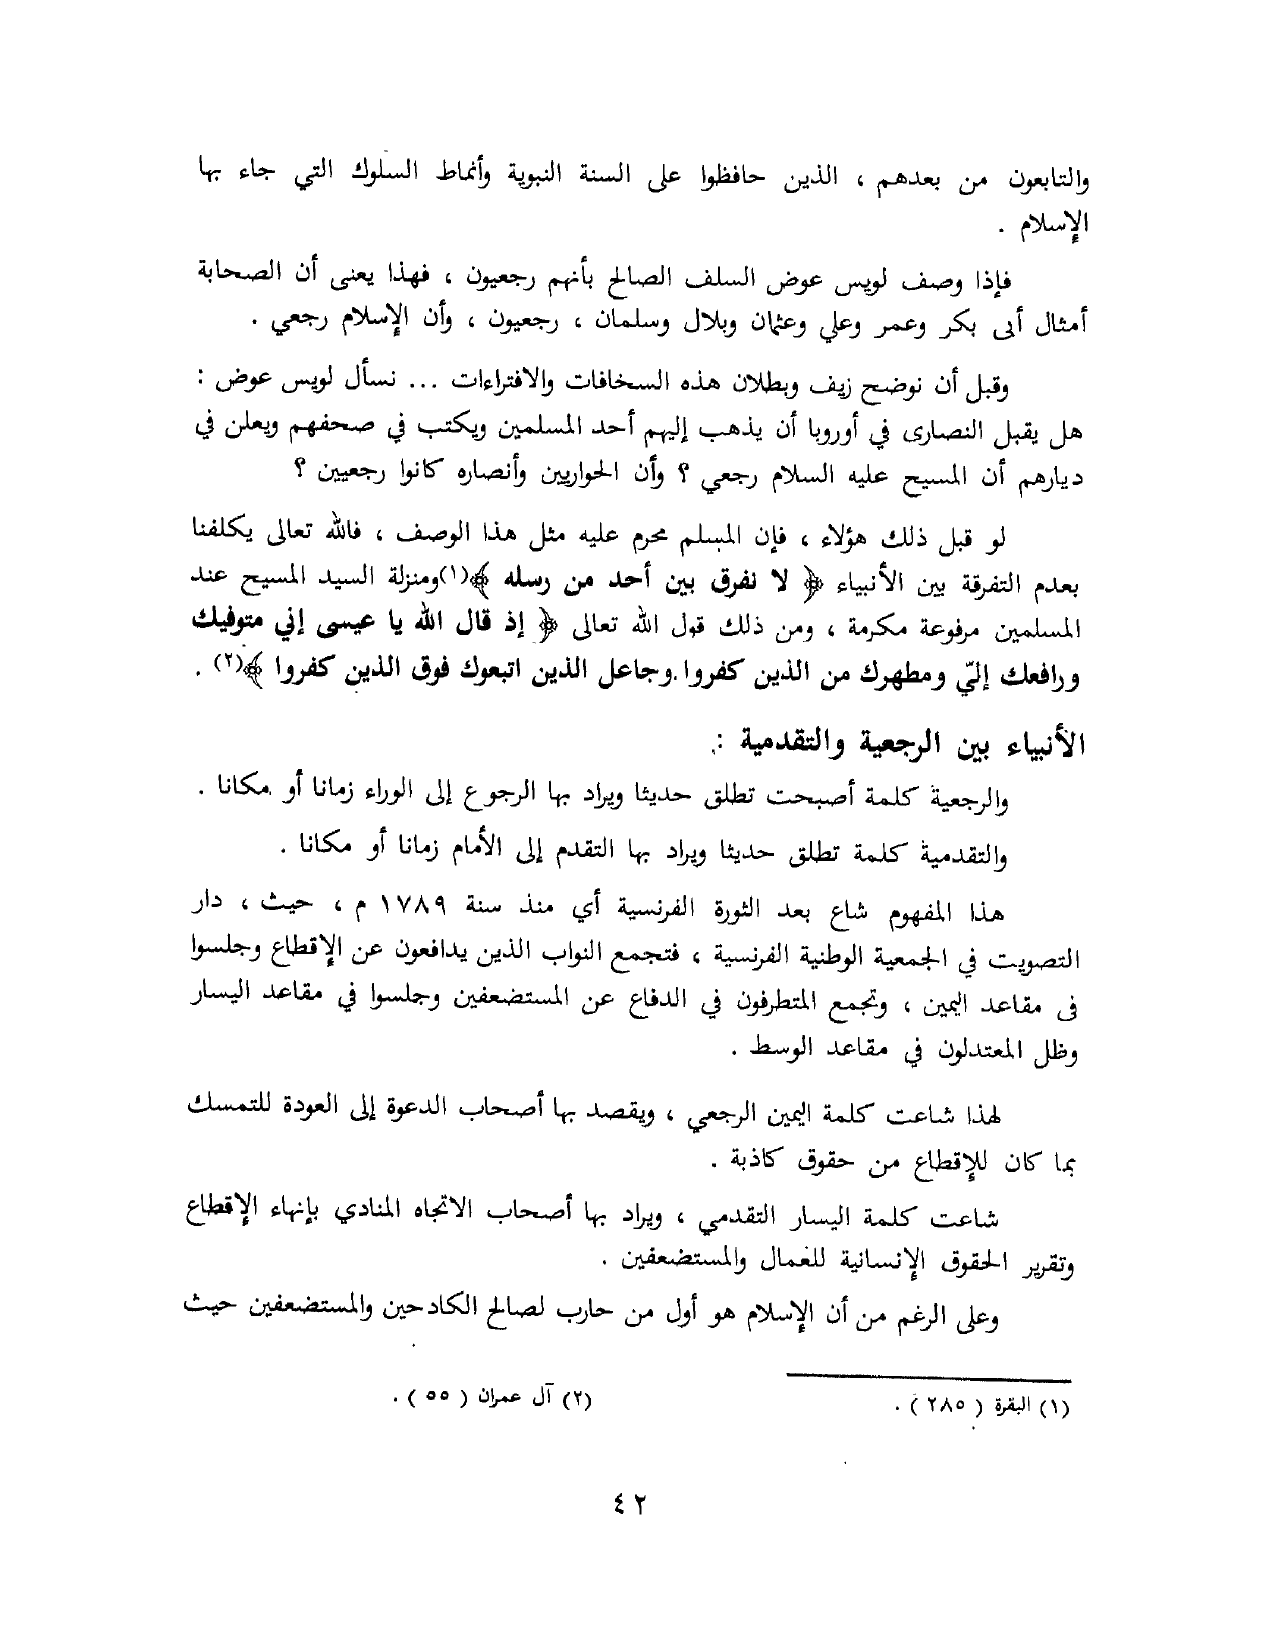 والتابعون من بعدهم ، الذين حافظوا على السنة النبوية وأنماط السلوك التي جاء بها
الإسلام .
فإذا وصف لويس عوض السلف الصالح بأنهم رجعيون ، فهذا يعنى أن الصحابة
أمثال أبى بكر وعمر وعلي وعثمان وبلال وسلمان ، رجعيون ، وأن الإسلام رجعي .
وقبل أن نوضح زيف وبطلان هذه السخافات والافتراءات ... نسأل لويس عوض :
هل يقبل النصارى في أوروبا أن يذهب إليهم أحد المسلمين ويكتب في صحفهم ويعلن في
ديارهم أن المسيح عليه السلام رجعي ؟ وأن الحواريين وأنصاره كانوا رجعيين ؟
لو قبل ذلك هؤلاء ، فإن المسلم محرم عليه مثل هذا الوصف ، فالله تعالى يكلفنا
بعدم التفرقة بين الأنبياء ﴿ لا نفرق بين أحد من رسله ﴾(١)ومنزلة السيد المسيح عند
المسلمين مرفوعة مكرمة ، ومن ذلك قول الله تعالى ﴿ إذ قال الله يا عيسى إني متوفيك
ورافعك إليّ ومطهرك من الذين كفروا وجاعل الذين اتبعوك فوق الذين كفروا ﴾(٢) .
الأنبياء بين الرجعية والتقدمية :
والرجعية كلمة أصبحت تطلق حديثا ويراد بها الرجوع إلى الوراء زمانا أو مكانا .
والتقدمية كلمة تطلق حديثا ويراد بها التقدم إلى الأمام زمانا أو مكانا .
هذا المفهوم شاع بعد الثورة الفرنسية أي منذ سنة ١٧٨٩ م ، حيث ، دار
التصويت في الجمعية الوطنية الفرنسية ، فتجمع النواب الذين يدافعون عن الإقطاع وجلسوا
فى مقاعد اليمين ، وتجمع المتطرفون في الدفاع عن المستضعفين وجلسوا في مقاعد اليسار
وظل المعتدلون في مقاعد الوسط .
لهذا شاعت كلمة اليمين الرجعي ، ويقصد بها أصحاب الدعوة إلى العودة للتمسك
بما كان للإقطاع من حقوق كاذبة .
شاعت كلمة اليسار التقدمي ، ويراد بها أصحاب الاتجاه المنادي بإنهاء الإقطاع
وتقرير الحقوق الإنسانية للعمال والمستضعفين .
وعلى الرغم من أن الإسلام هو أول من حارب لصالح الكادحين والمستضعفين حيث
(١) البقرة ( ٢٨٥ ) .
(٢) آل عمران ( ٥٥ ) .
٤٢